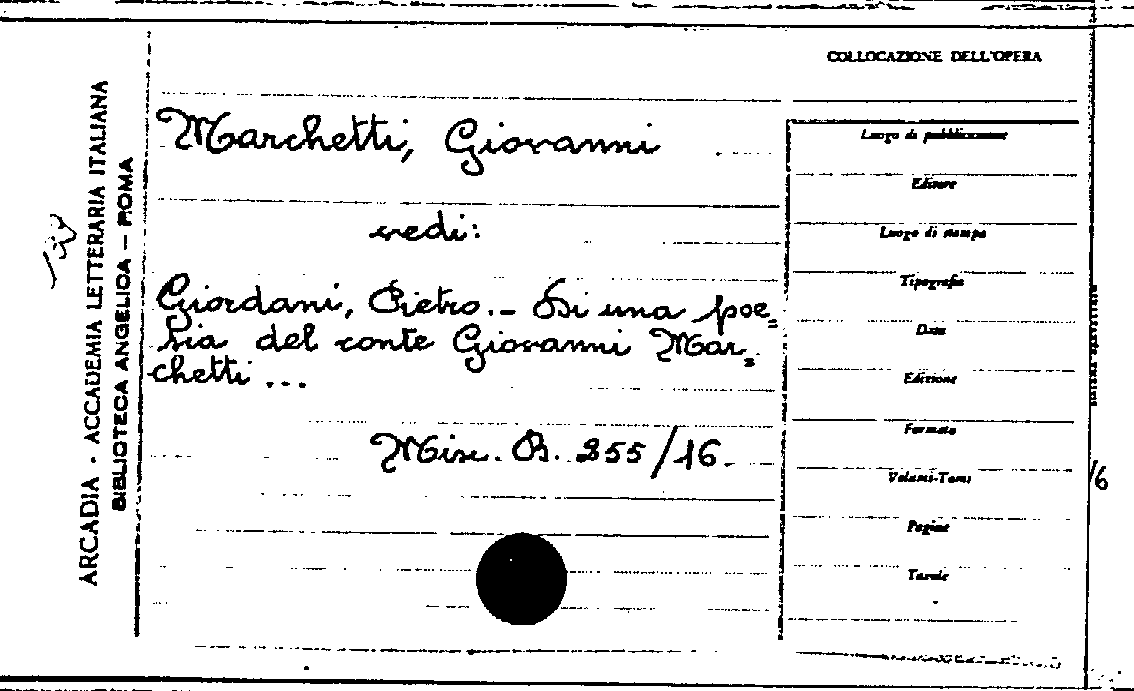 COLLOCAZIONE DELL'OPERA
Marchetti, Giovanni
vedi:
Giordani, Pietro. - Di una poe=
sia del conte Giovanni Mar=
chetti ...
Misc. B. 255/16.
ARCADIA - ACCADEMIA LETTERARIA ITALIANA
BIBLIOTECA ANGELICA — ROMA
Luogo di pubblicazione
Editore
Luogo di stampa
Tipografia
Data
Edizione
Formato
Volumi-Tomi
Pagine
Tavole
/6